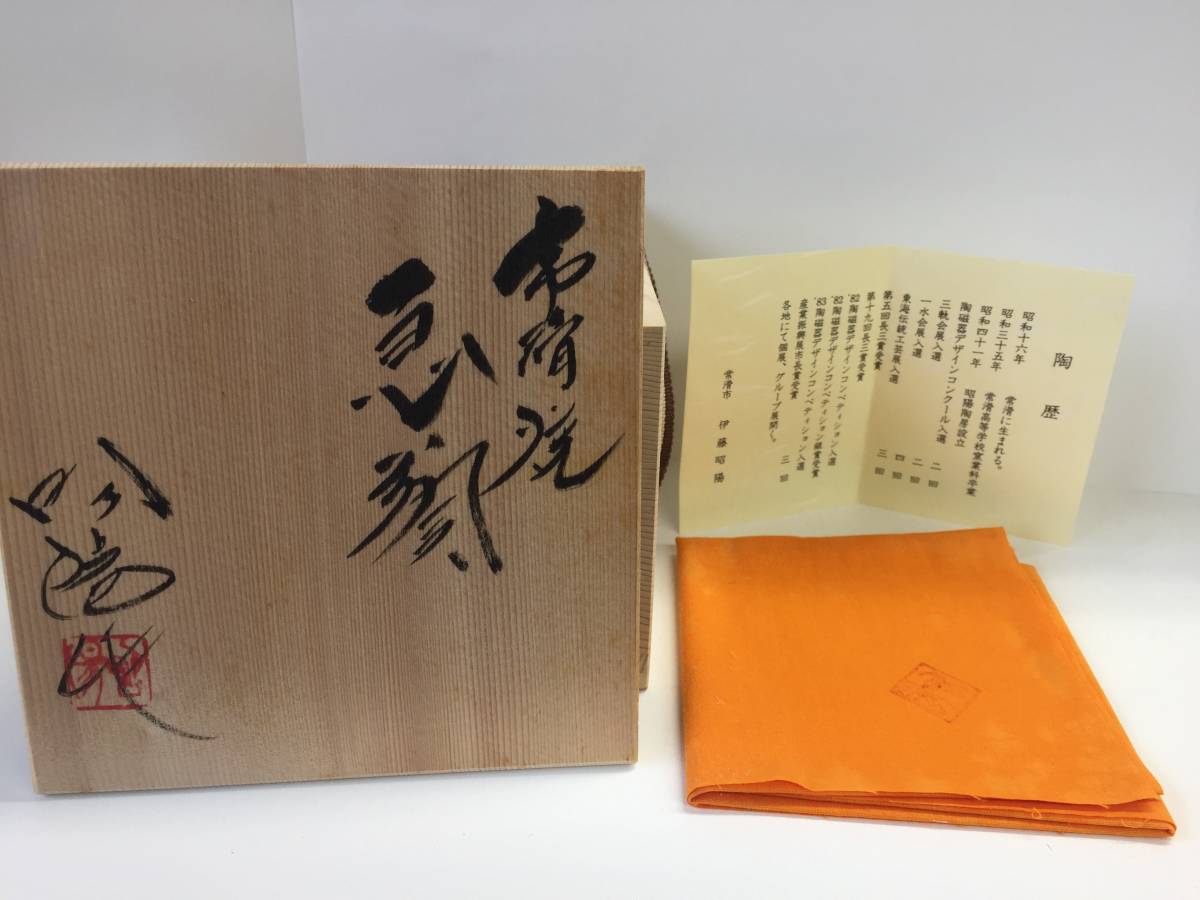 常滑焼
急須
昭陽作
陶歴
昭和十六年 常滑に生まれる。
昭和三十五年 常滑高等学校窯業科卒業
昭和四十一年 昭陽陶房設立
陶磁器デザインコンクール入選 二回
三軌会展入選 二回
一水会展入選 四回
東海伝統工芸展入選 三回
第五回長三賞受賞
第十九回長三賞受賞
'82陶磁器デザインコンペティション入選
'82陶磁器デザインコンペティション銀賞受賞
'83陶磁器デザインコンペティション入選
産業振興展市長賞受賞 三回
各地にて個展、グループ展開く。
常滑市 伊藤昭陽